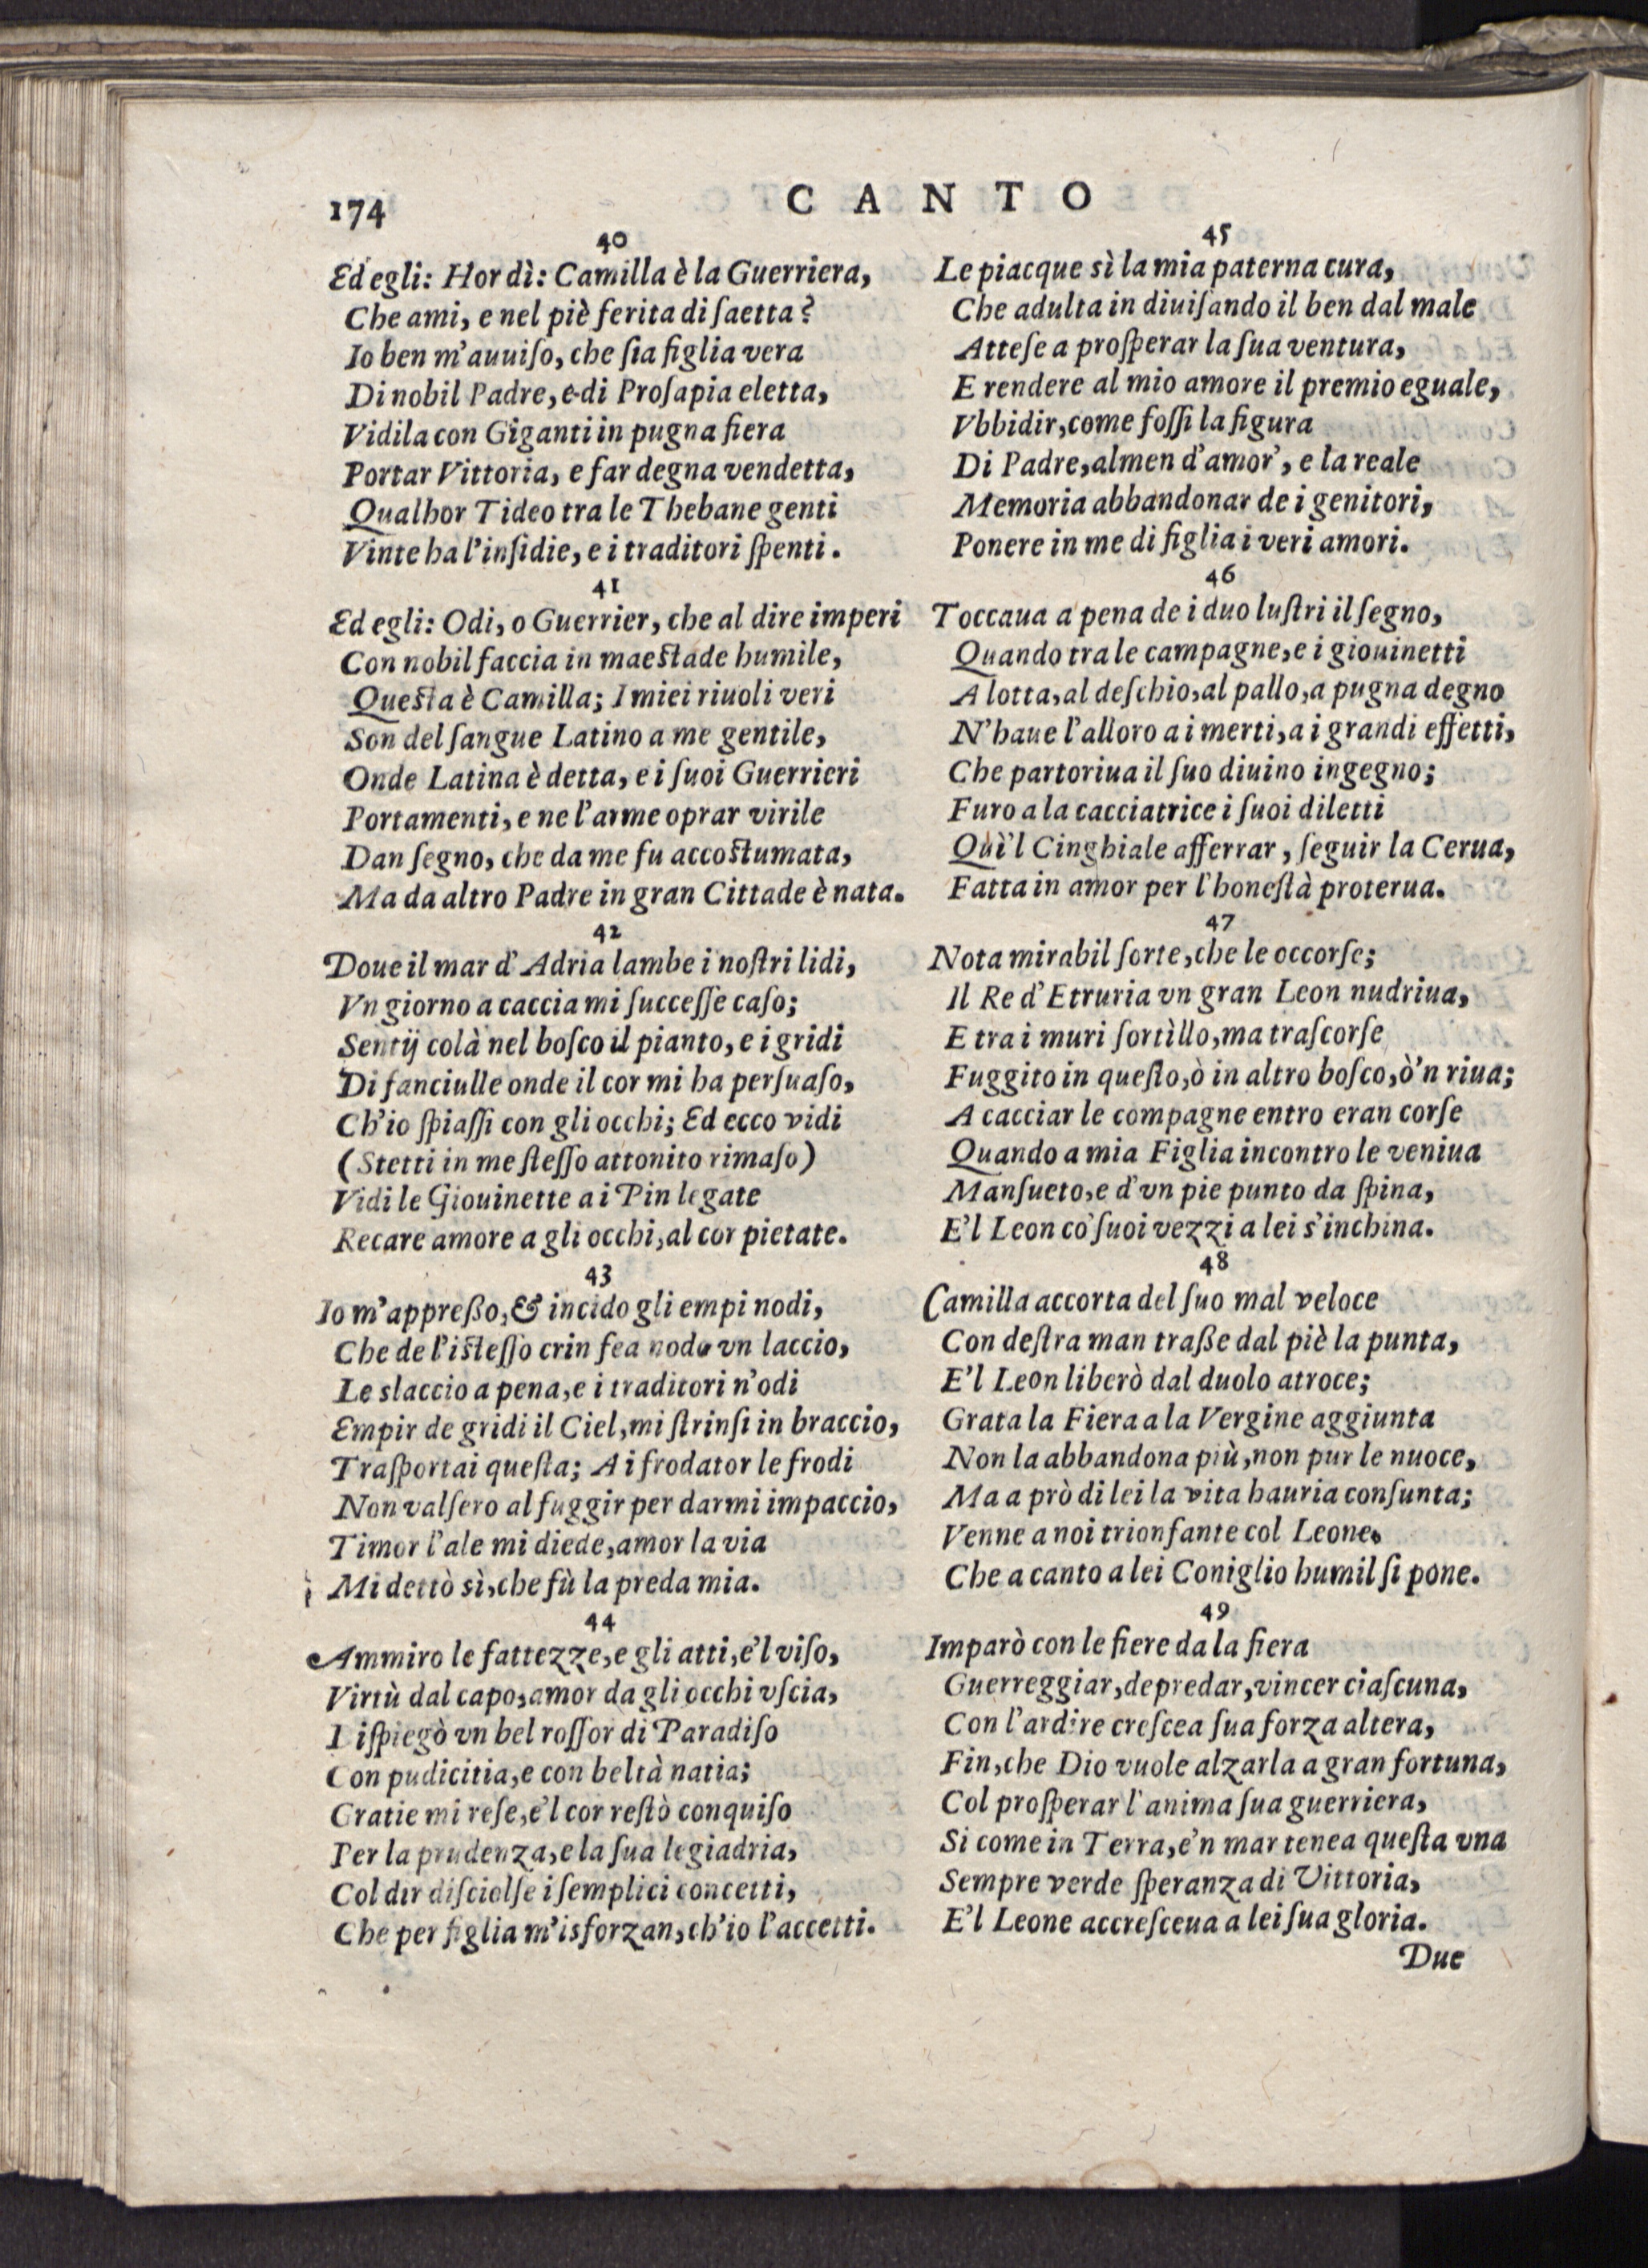 174
CANTO
40
Ed egli: Hor dì: Camilla è la Guerriera,
Che ami, e nel piè ferita di ſaetta?
Io ben m'auuiſo, che ſia figlia vera
Di nobil Padre, e di Proſapia eletta,
Vidila con Giganti in pugna fiera
Portar Vittoria, e far degna vendetta,
Qualhor Tideo tra le Thebane genti
Vinte ha l'inſidie, e i traditori ſpenti.
41
Ed egli: Odi, o Guerrier, che al dire imperi
Con nobil faccia in maeſtade humile,
Queſta è Camilla; I miei riuoli veri
Son del ſangue Latino a me gentile,
Onde Latina è detta, e i ſuoi Guerrieri
Portamenti, e ne l'arme oprar virile
Dan ſegno, che da me fu accoſtumata,
Ma da altro Padre in gran Cittade è nata.
42
Doue il mar d'Adria lambe i noſtri lidi,
Vn giorno a caccia mi ſucceſſe caſo;
Sentij colà nel boſco il pianto, e i gridi
Di fanciulle onde il cor mi ha perſuaſo,
Ch'io ſpiaſſi con gli occhi; Ed ecco vidi
(Stetti in me ſteſſo attonito rimaſo)
Vidi le Giouinette a i Pin legate
Recare amore a gli occhi, al cor pietate.
43
Io m'appreßo, & incido gli empi nodi,
Che de l'iſteſſo crin fea nodo vn laccio,
Le slaccio a pena, e i traditori n'odi
Empir de gridi il Ciel, mi ſtrinſi in braccio,
Traſportai queſta; A i frodator le frodi
Non valſero al fuggir per darmi impaccio,
Timor l'ale mi diede, amor la via
Mi dettò sì, che fù la preda mia.
44
Ammiro le fattezze, e gli atti, e'l viſo,
Virtù dal capo, amor da gli occhi vſcia,
Diſpiegò vn bel roſſor di Paradiſo
Con pudicitia, e con beltà natia;
Gratie mi reſe, e'l cor reſtò conquiſo
Per la prudenza, e la ſua legiadria,
Col dir diſciolſe i ſemplici concetti,
Che per figlia m'isforzan, ch'io l'accetti.
45
Le piacque sì la mia paterna cura,
Che adulta in diuiſando il ben dal male
Atteſe a proſperar la ſua ventura,
E rendere al mio amore il premio eguale,
Vbbidir, come foſſi la figura
Di Padre, almen d'amor', e la reale
Memoria abbandonar de i genitori,
Ponere in me di figlia i veri amori.
46
Toccaua a pena de i duo luſtri il ſegno,
Quando tra le campagne, e i giouinetti
A lotta, al deſchio, al pallo, a pugna degno
N'haue l'alloro a i merti, a i grandi effetti,
Che partoriua il ſuo diuino ingegno;
Furo a la cacciatrice i ſuoi diletti
Quì'l Cinghiale afferrar, ſeguir la Cerua,
Fatta in amor per l'honeſtà proterua.
47
Nota mirabil ſorte, che le occorſe;
Il Re d'Etruria vn gran Leon nudriua,
E tra i muri ſortìllo, ma traſcorſe
Fuggito in queſto, ò in altro boſco, ò'n riua;
A cacciar le compagne entro eran corſe
Quando a mia Figlia incontro le veniua
Manſueto, e d'vn pie punto da ſpina,
E'l Leon co' ſuoi vezzi a lei s'inchina.
48
Camilla accorta del ſuo mal veloce
Con deſtra man traße dal piè la punta,
E'l Leon liberò dal duolo atroce;
Grata la Fiera a la Vergine aggiunta
Non la abbandona più, non pur le nuoce,
Ma a prò di lei la vita hauria conſunta;
Venne a noi trionfante col Leone.
Che a canto a lei Coniglio humil ſi pone.
49
Imparò con le fiere da la fiera
Guerreggiar, depredar, vincer ciaſcuna,
Con l'ardire creſcea ſua forza altera,
Fin, che Dio vuole alzarla a gran fortuna,
Col proſperar l'anima ſua guerriera,
Si come in Terra, e'n mar tenea queſta vna
Sempre verde ſperanza di Vittoria,
E'l Leone accreſceua a lei ſua gloria.
Due